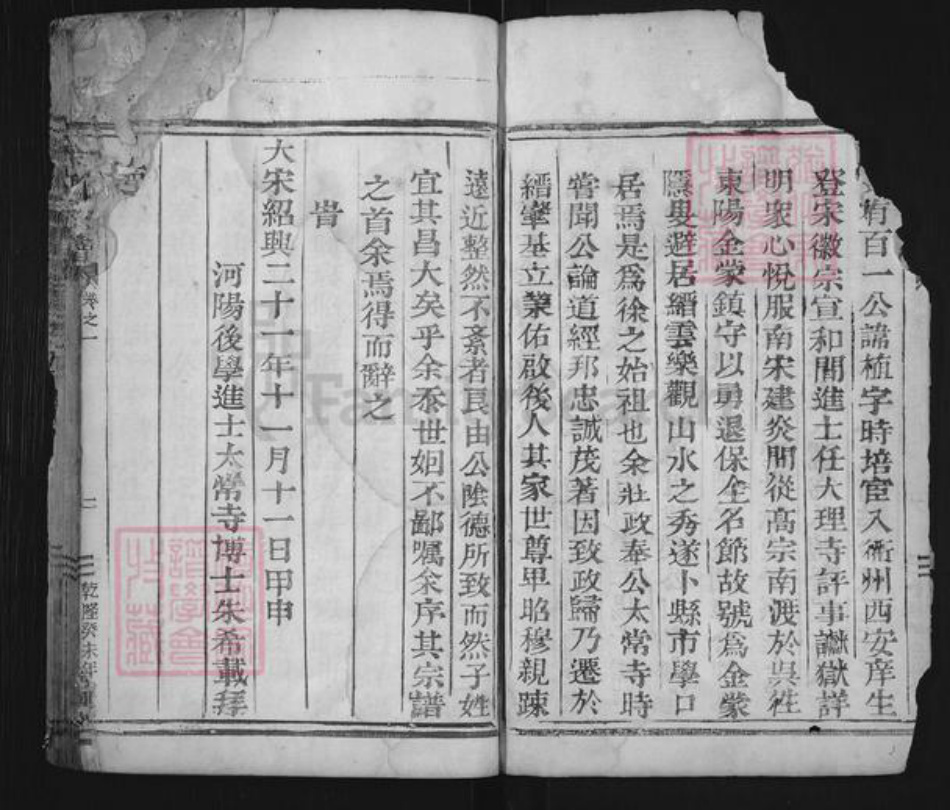 有百一公諱植字時培宦入衢州西安庠生
登宋徽宗宣和間進士任大理寺評事讞獄詳
明衆心悅服南宋建炎間從高宗南渡於吳往
東陽金蒙鎮守以勇退保全名節故號爲金蒙
隱叟避居縉雲樂觀山水之秀遂卜縣市學口
居焉是爲徐之始祖也余壯政奉公太常寺時
嘗聞公論道經邦忠誠茂著因致政歸乃遷於
縉肇基立業佑啟後人其家世尊卑昭穆親疎
遠近整然不紊者良由公陰德所致而然子姓
宜其昌大矣乎余忝世姻不鄙囑余序其宗譜
之首余焉得而辭之
旹
大宋紹興二十一年十一月十一日甲申
河陽後學進士太常寺博士朱希載拜
卷之一
二
乾隆癸未年
譜學會
收藏
FamilySearch